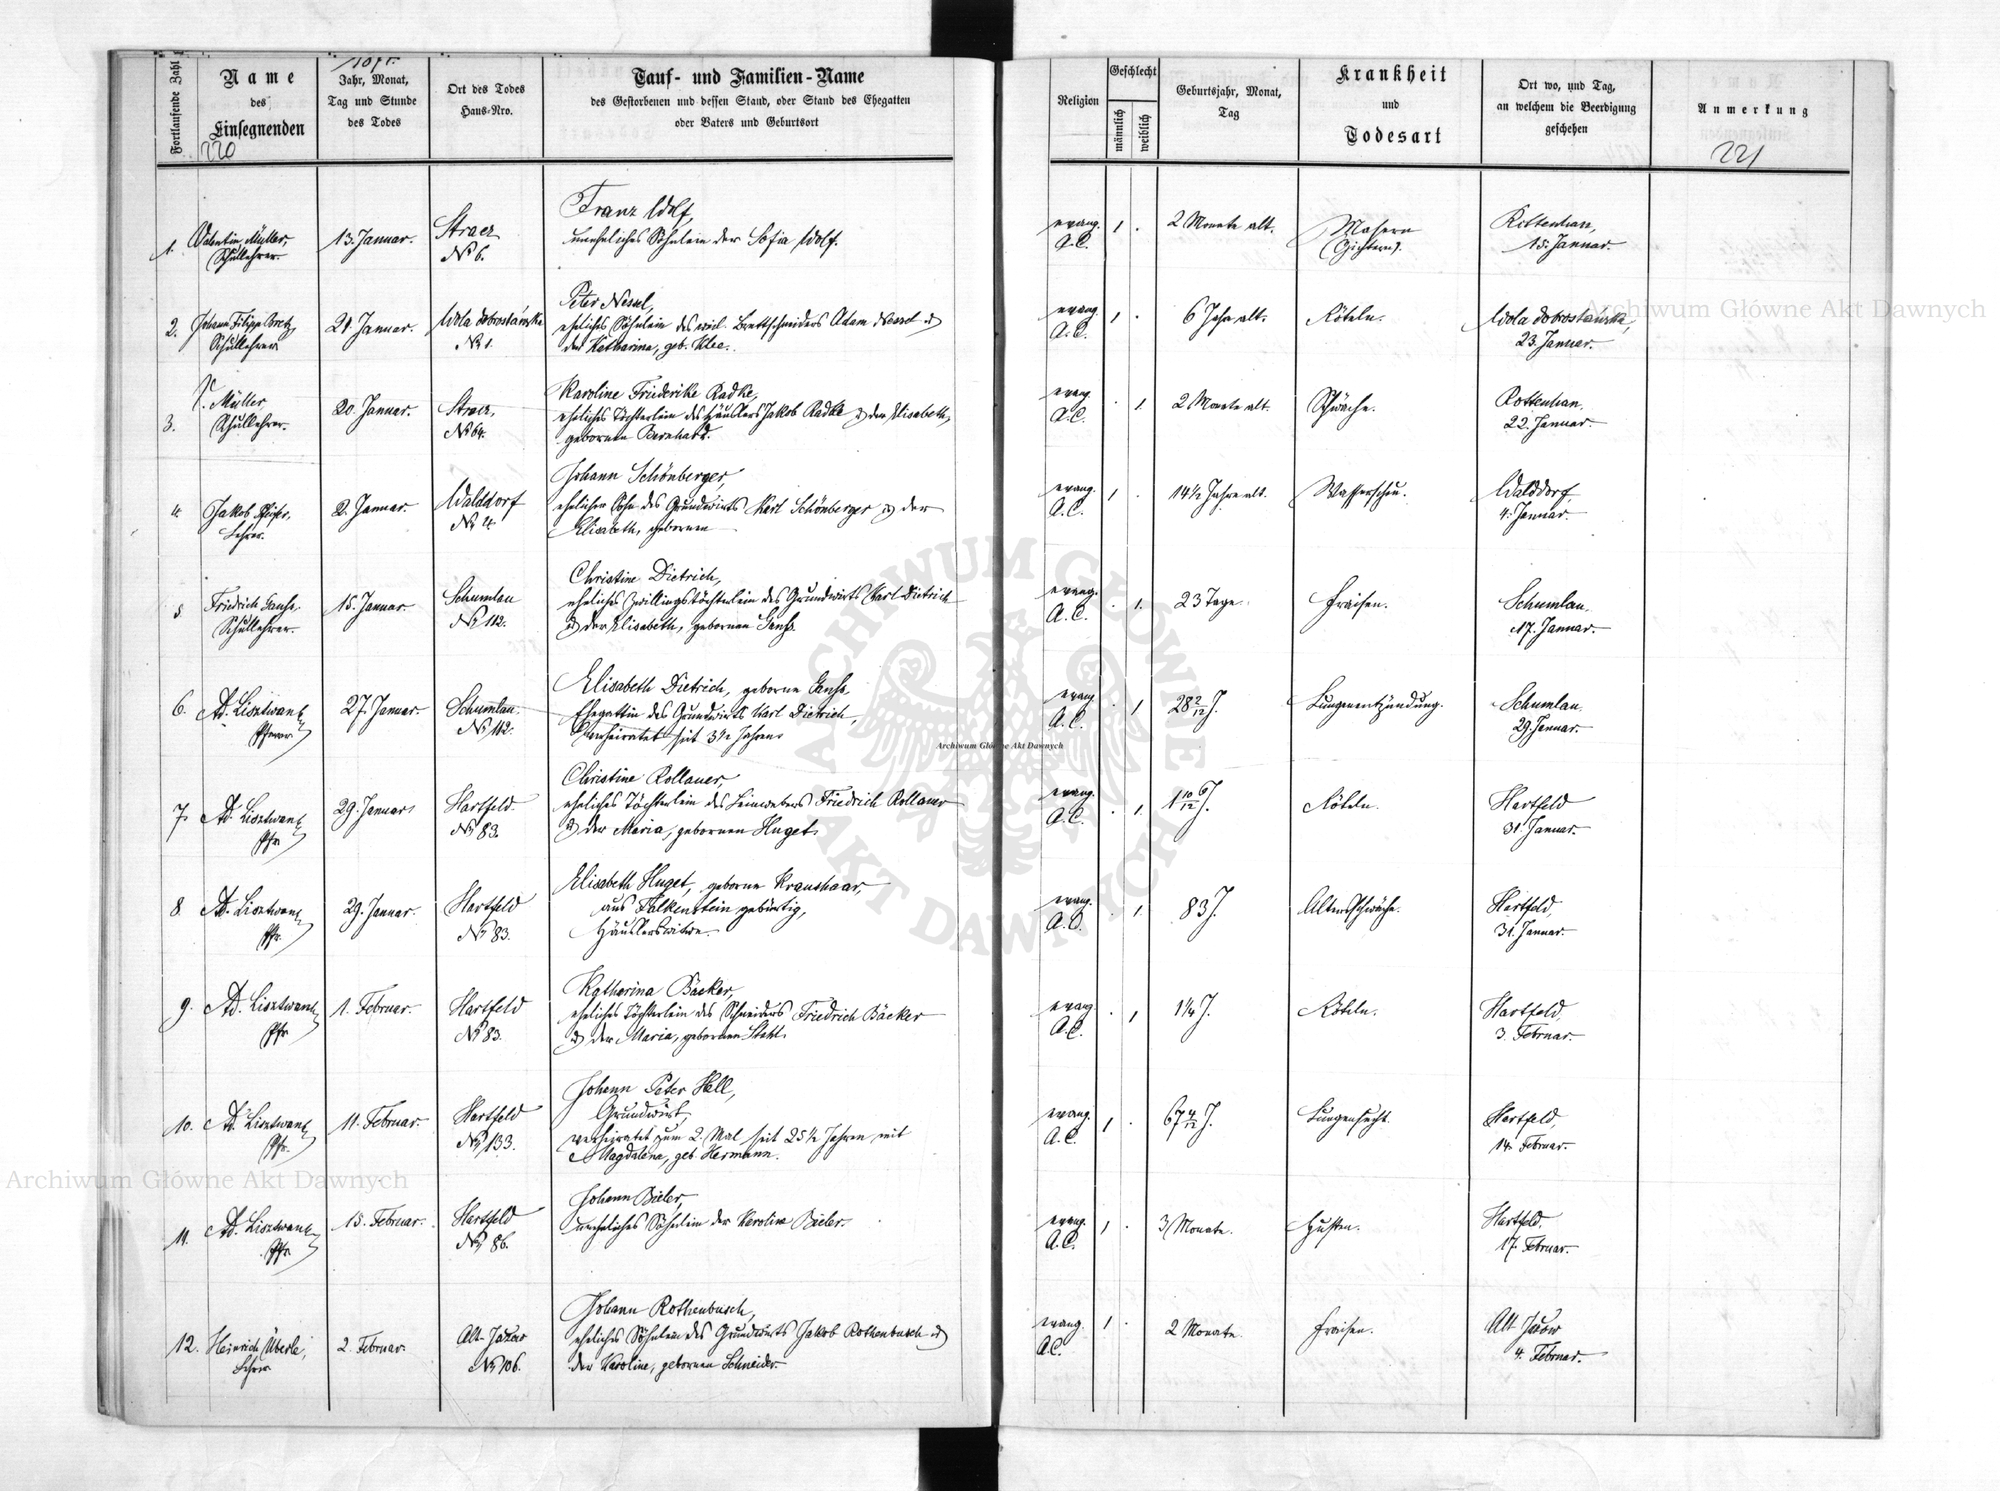 Fortlaufende Zahl
Name
des
Einsegnenden
220
Jahr, Monat,
Tag und Stunde
des Todes
Ort des Todes
Haus-Nro.
Tauf- und Familien-Name
des Gestorbenen und dessen Stand, oder Stand des Ehegatten
oder Vaters und Geburtsort
Religion
Geschlecht
männlich
weiblich
Geburtsjahr, Monat,
Tag
Krankheit
und
Todesart
Ort wo, und Tag,
an welchem die Beerdigung
geschehen
Anmerkung
221
1. Valentin Müller, Schullehrer. 13. Januar. Stracz No 6.
Franz Wolf,
uneheliches Söhnlein der Sofia Wolf.
evang. A.C. 1 . 2 Monate alt. Masern (Gichtern). Rottenhan, 15. Januar.
2. Johann Filipp Schullehrer 21. Januar. Wola dobrostańska No 1.
Peter Nessel,
eheliches Söhnlein des Brettschneiders Adam Nessel u
der Katharina, geb. Klee.
evang. A.C. 1 . 6 Jahr alt. Röteln. Wola dobrostańska, 23. Januar.
3. V. Müller, Schullehrer. 20. Januar. Stracz, No 64.
Karoline Friederike Radke,
eheliches Töchterlein des Häuslers Jakob Radke u der Elisabeth,
gebornen Bernhard.
evang. A.C. . 1. 2 Monate alt. Schwäche. Rottenhan, 22. Januar.
4. Jakob Lehrer. 2. Januar. Walddorf No 4.
Johann Schönberger,
ehelicher Sohn des Grundwirts Karl Schönberger u der
Elisabeth, gebornen —
evang. A.C. 1 . 14½ Jahre alt. Wasserscheu. Walddorf, 4. Januar.
5 Friedrich Schullehrer. 15. Januar. Schumlau No 112.
Christine Dietrich,
eheliches Zwillingstöchterlein des Grundwirts Karl Dietrich
u der Elisabeth, gebornen
evang. A.C. . 1. 23 Tage. Fraisen. Schumlau, 17. Januar.
6. Ad. Lisztwan Pfarrer 27. Januar. Schumlau. No 112.
Elisabeth Dietrich, geborne
Ehegattin des Grundwirts Karl Dietrich,
verheiratet seit 3½ Jahren
evang A.C. . 1 28 2/12 J. Lungenentzündung. Schumlau, 29. Januar.
7. Ad. Lisztwan Pfr. 29. Januar. Hartfeld No 83.
Christine Rollauer,
eheliches Töchterlein des Leinwebers Friedrich Rollauer
u der Maria, gebornen Huget.
evang. A.C. . 1. 1 10/12 J. Röteln. Hartfeld 31. Januar.
8. Ad. Lisztwan Pfr. 29. Januar. Hartfeld No 83.
Elisabeth Huget, geborne Kraushaar,
aus Falkenstein gebürtig,
Häuslerswitwe.
evang. A.C. . 1. 83 J. Altersschwäche. Hartfeld, 31. Januar.
9. Ad. Lisztwan Pfr 1. Februar. Hartfeld No 83.
Katharina Bäcker,
eheliches Töchterlein des Schneiders Friedrich Bäcker
u der Maria, gebornen Stahl.
evang. A.C. . 1 1¼ J. Röteln. Hartfeld, 3. Februar.
10. Ad. Lisztwan Pfr. 11. Februar. Hartfeld No 133.
Johann Peter Hell,
Grundwirt,
verheiratet zum 2. Mal seit 25½ Jahren mit
Magdalena, geb. Hermann.
evang. A.C. 1 . 67 4/12 J. Lungensucht. Hartfeld, 14. Februar.
11. Ad. Lisztwan Pfr. 15. Februar. Hartfeld No 86.
Johann Bieler,
uneheliches Söhnlein der Karolina Bieler.
evang. A.C. 1 . 3 Monate. Husten. Hartfeld, 17. Februar.
12. Heinrich Überle, Lehrer 2. Februar. Alt-Jazow No 106.
Johann Rothenbusch,
eheliches Söhnlein des Grundwirts Jakob Rothenbusch u
der Karoline, gebornen Schneider.
evang. A.C. 1 . 2 Monate. Fraisen. Alt Jazow 4. Februar.
Archiwum Główne Akt Dawnych
Archiwum Główne Akt Dawnych
Archiwum Główne Akt Dawnych
ARCHIWUM GŁÓWNE
AKT DAWNYCH